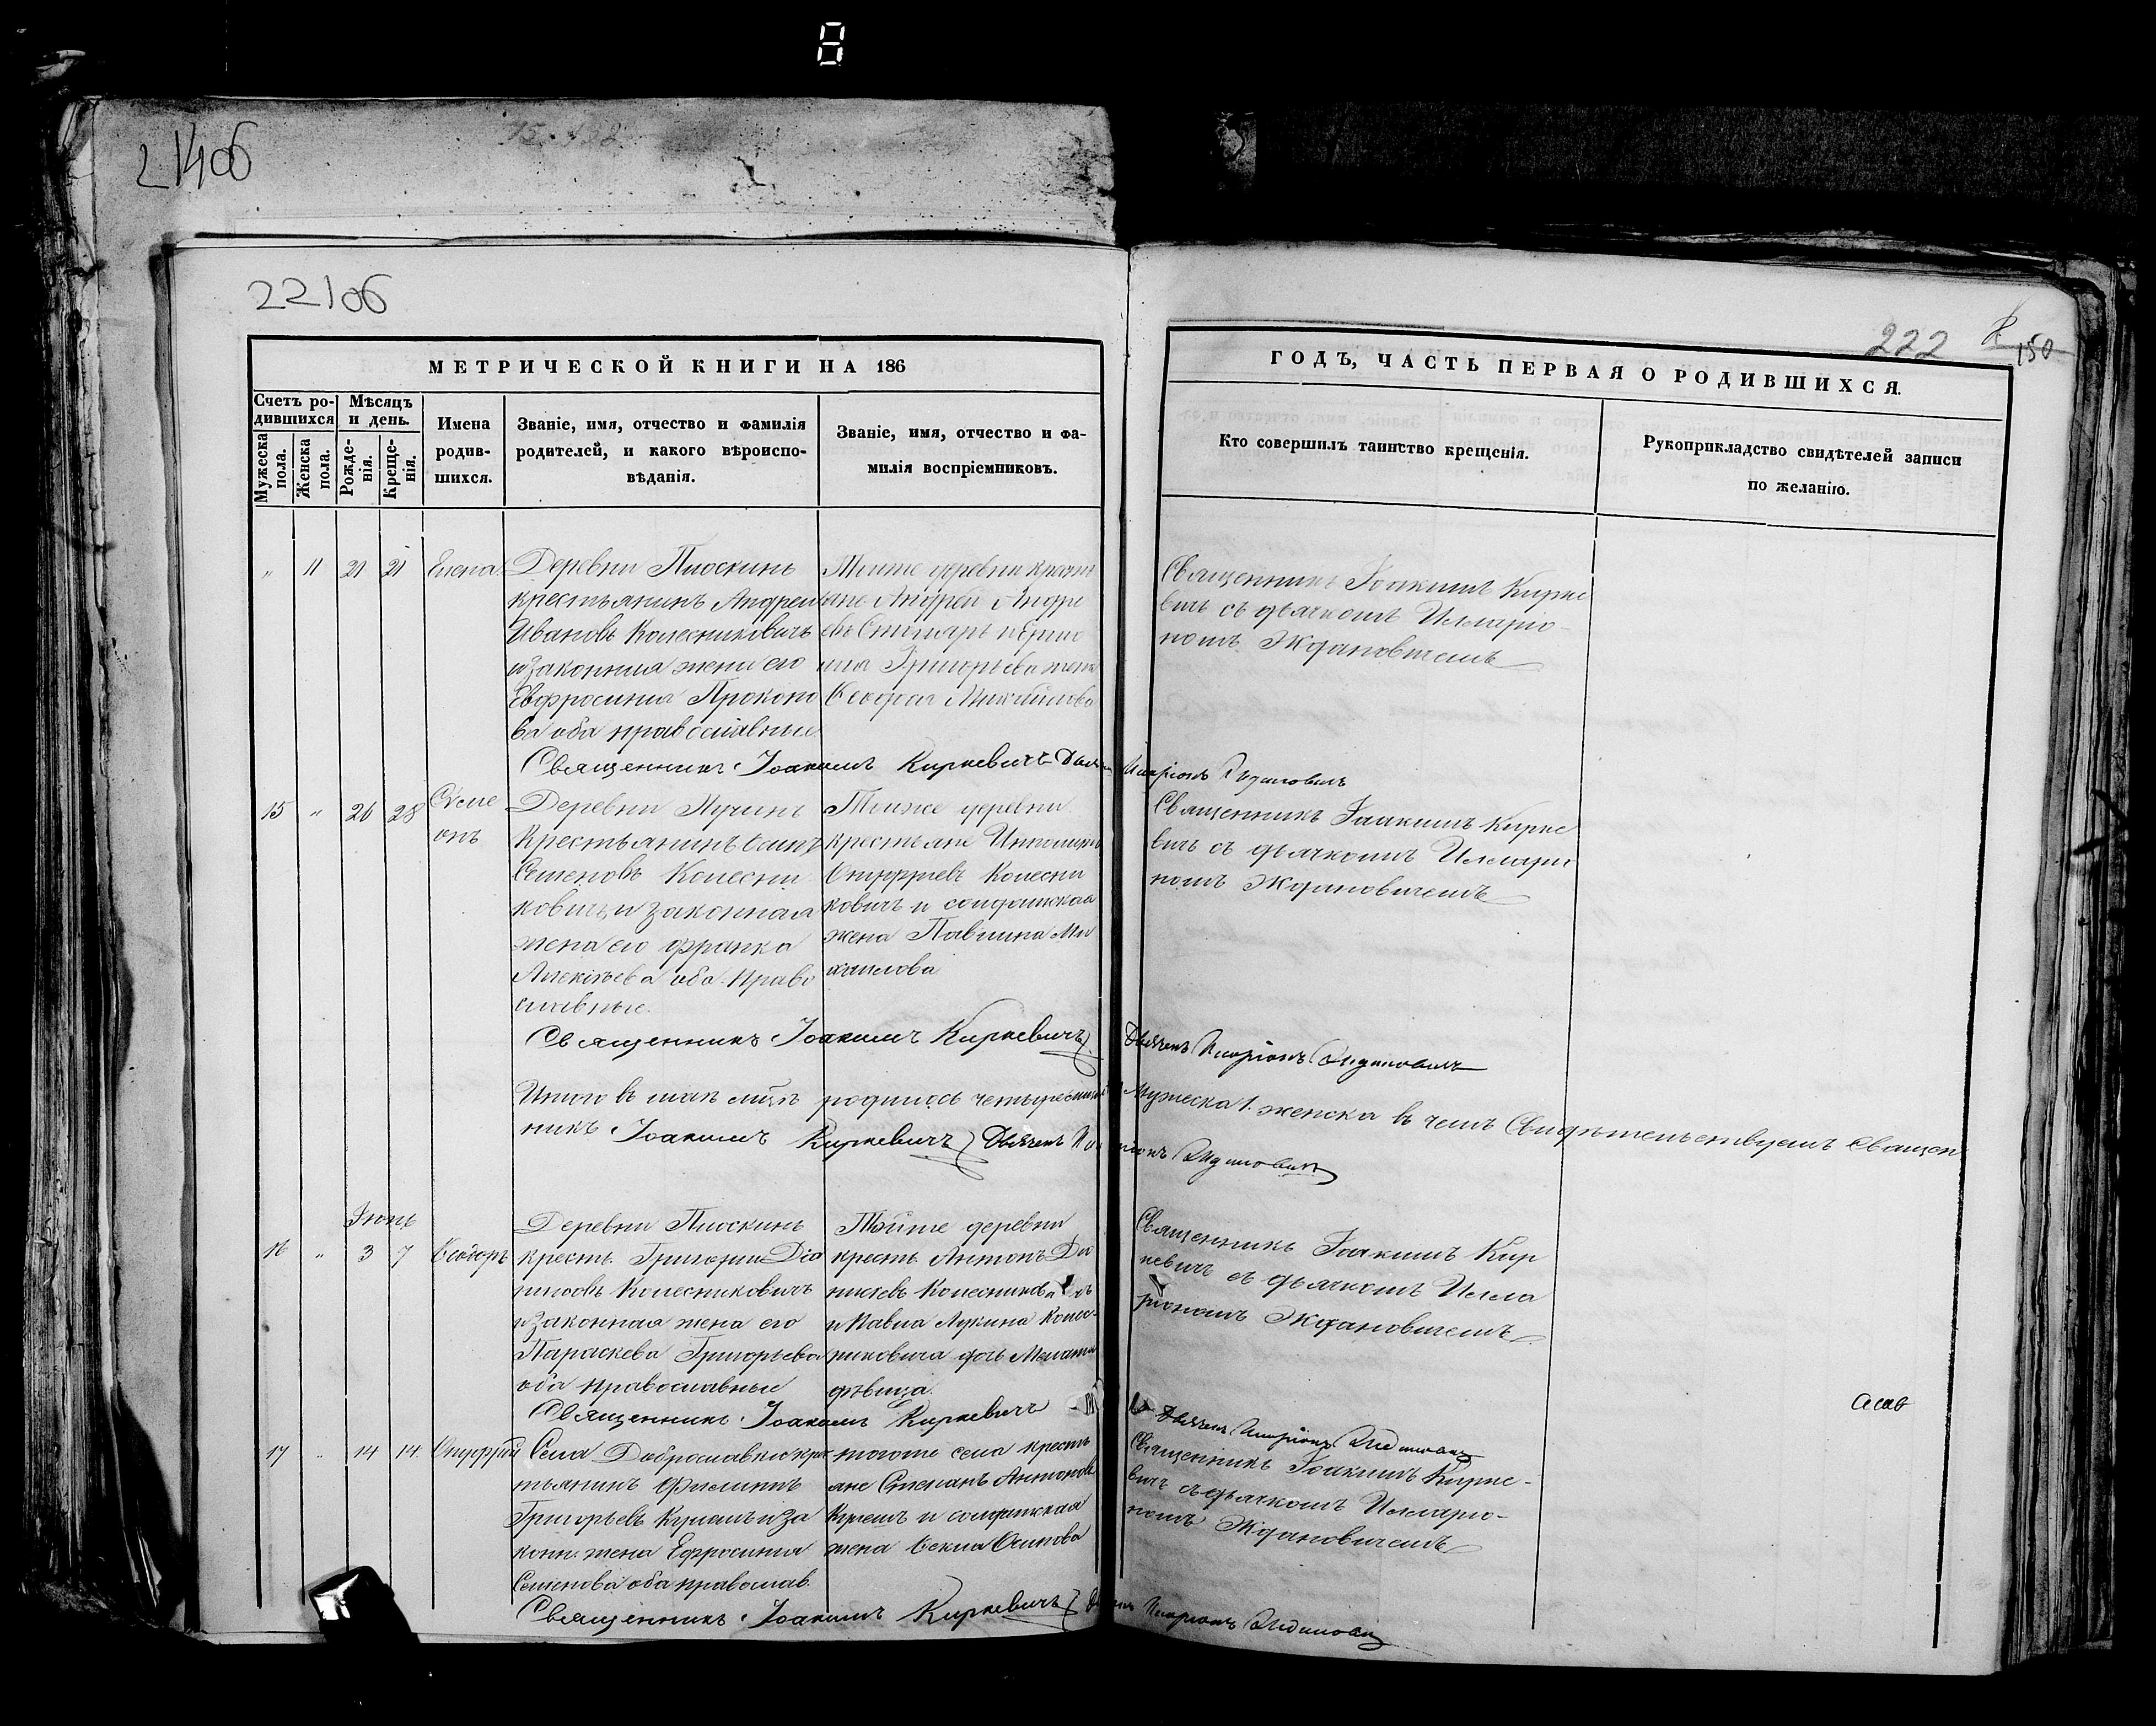 8
21406
22106
222
150
МЕТРИЧЕСКОЙ КНИГИ НА 186
ГОДЪ, ЧАСТЬ ПЕРВАЯ О РОДИВШИХСЯ.
Счетъ ро-
дившихся
Мѣсяцъ
и день.
Мужеска
пола.
Женска
пола.
Рожде-
нія.
Креще-
нія.
Имена
родив-
шихся.
Званіе, имя, отчество и фамилія
родителей, и какого вѣроиспо-
вѣданія.
Званіе, имя, отчество и фа-
милія воспріемниковъ.
Кто совершилъ таинство крещенія.
Рукоприкладство свидѣтелей записи
по желанію.
" 11 21 21 Елена
Деревни Плоскинь
крестьянинъ Андрей
Ивановъ Колесниковичъ
и законная жена его
Евфросинія Прокопо
ва оба православные
Тойже деревни кресть
яне Андрей Андре
евъ
Григорьева жена
Ѳеодора Михайлова
Священникъ Іоакимъ Кирке
вичъ съ дьячкомъ Илларіо
номъ Ждановичемъ
Священникъ Іоакимъ Киркевичъ Дьячекъ Иларіонъ Ждановичъ
15 " 26 28 Симе
онъ
Деревни
Крестьянинъ Осипъ
Семеновъ Колесни
ковичъ и законная
жена его Франка
Алексѣева оба право
славные.
Тойже деревни
крестьяне
Онуфріевъ Колесни
ковичъ и солдатская
жена Павлина Ми
хаилова
Священникъ Іоакимъ Кирке
вичъ съ дьячкомъ Илларіо
номъ Ждановичемъ
Священникъ Іоакимъ Киркевичъ Дьячекъ Иларіонъ Ждановичъ
Итого въ маѣ мцѣ родилось четыре мужеска 1. женска въ чемъ Свидѣтельствуемъ Священ
никъ Іоакимъ Киркевичъ Дьячекъ Иларіонъ Ждановичъ
Іюнь
16 " 3 7 Ѳеодоръ
Деревни Плоскинь
крестъ. Григорій Діо
нисовъ Колесниковичъ
и законная жена его
Параскева Григорьева
оба православные
Тойже деревни
крестъ. Антонъ Діо
нисіевъ
и Павла Лукина Колес-
никовича дочь
дѣвица.
Священникъ Іоакимъ Кир
кевичъ съ дьячкомъ Илла
ріономъ Ждановичемъ
Священникъ Іоакимъ Киркевичъ Дьячекъ Иларіонъ Ждановичъ
17 " 14 14. Онуфрій
Села Доброславки крес
тьянинъ Филиппъ
Григорьевъ и за
конн. жена Ефросинія
Семенова оба православ.
тогоже села кресть
яне Степанъ Антоновъ
и солдатская
жена Ѳекла Осипова
Священникъ Іоакимъ Кирке-
вичъ съ дьячкомъ Илларіо-
номъ Ждановичемъ
Священникъ Іоакимъ Киркевичъ Иларіонъ Ждановичъ